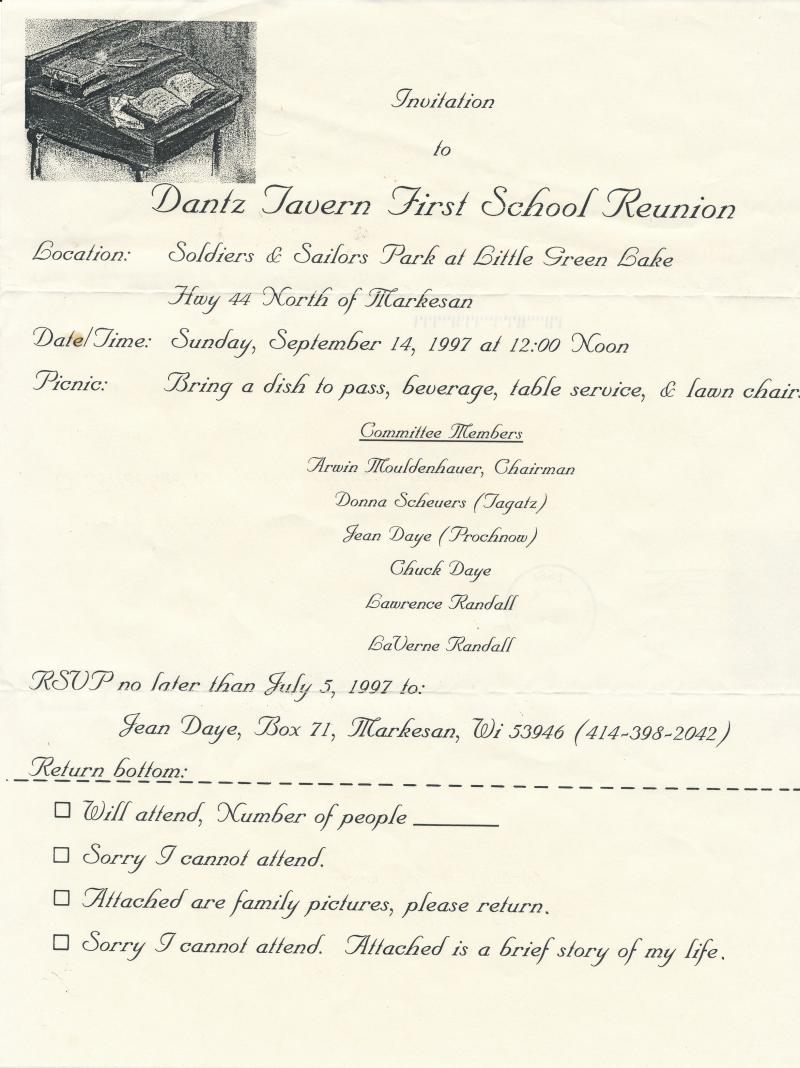 Invitation
to
Dantz Tavern First School Reunion
Location: Soldiers & Sailors Park at Little Green Lake
Hwy 44 North of Markesan
Date/Time: Sunday, September 14, 1997 at 12:00 Noon
Picnic: Bring a dish to pass, beverage, table service, & lawn chair
Committee Members
Arwin Mouldenhauer, Chairman
Donna Scheuers (Tagatz)
Jean Daye (Prochnow)
Chuck Daye
Lawrence Randall
LaVerne Randall
RSVP no later than July 5, 1997 to:
Jean Daye, Box 71, Markesan, Wi 53946 (414-398-2042)
Return bottom:
Will attend, Number of people
Sorry I cannot attend.
Attached are family pictures, please return.
Sorry I cannot attend. Attached is a brief story of my life.